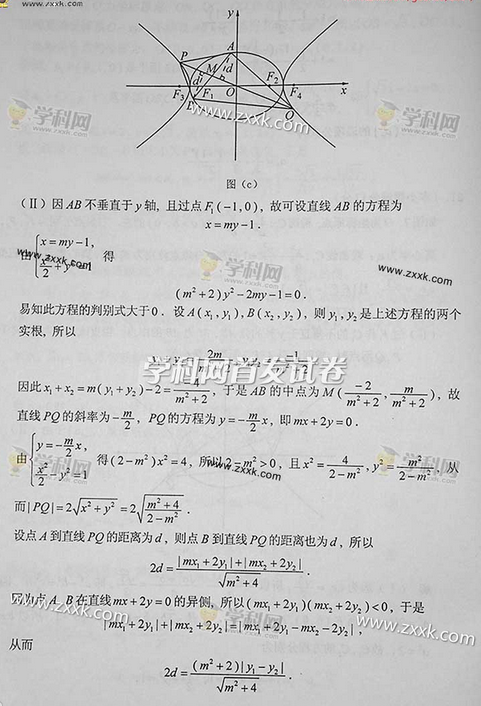 www.zxxk.com
y
P
A
M
d
d
F₃
F₁
O
F₂
F₄
x
B
Q
学科网
www.zxxk.com
图(c)
(Ⅱ)因AB不垂直于y轴,且过点F₁(-1,0),故可设直线AB的方程为
x=my-1.
由{x=my-1, x²/2+y²=1 得
学科网
www.zxxk.com
(m²+2)y²-2my-1=0.
易知此方程的判别式大于0.设A(x₁,y₁),B(x₂,y₂),则y₁,y₂是上述方程的两个
实根,所以
y₁+y₂=2m/(m²+2), y₁y₂=-1/(m²+2)
学科网首发试卷
因此x₁+x₂=m(y₁+y₂)-2=-4/(m²+2),于是AB的中点为M(-2/(m²+2), m/(m²+2)),故
直线PQ的斜率为-m/2,PQ的方程为y=-m/2 x,即mx+2y=0.
由{y=-m/2 x, x²/2-y²=1 得(2-m²)x²=4,所以2-m²>0,且x²=4/(2-m²),y²=m²/(2-m²),从
www.zxxk.com
而|PQ|=2√(x²+y²)=2√((m²+4)/(2-m²)).
设点A到直线PQ的距离为d,则点B到直线PQ的距离也为d,所以
2d=(|mx₁+2y₁|+|mx₂+2y₂|)/√(m²+4).
因为点A,B在直线mx+2y=0的异侧,所以(mx₁+2y₁)(mx₂+2y₂)<0,于是
|mx₁+2y₁|+|mx₂+2y₂|=|mx₁+2y₁-mx₂-2y₂|,
www.zxxk.com
从而
2d=((m²+2)|y₁-y₂|)/√(m²+4).